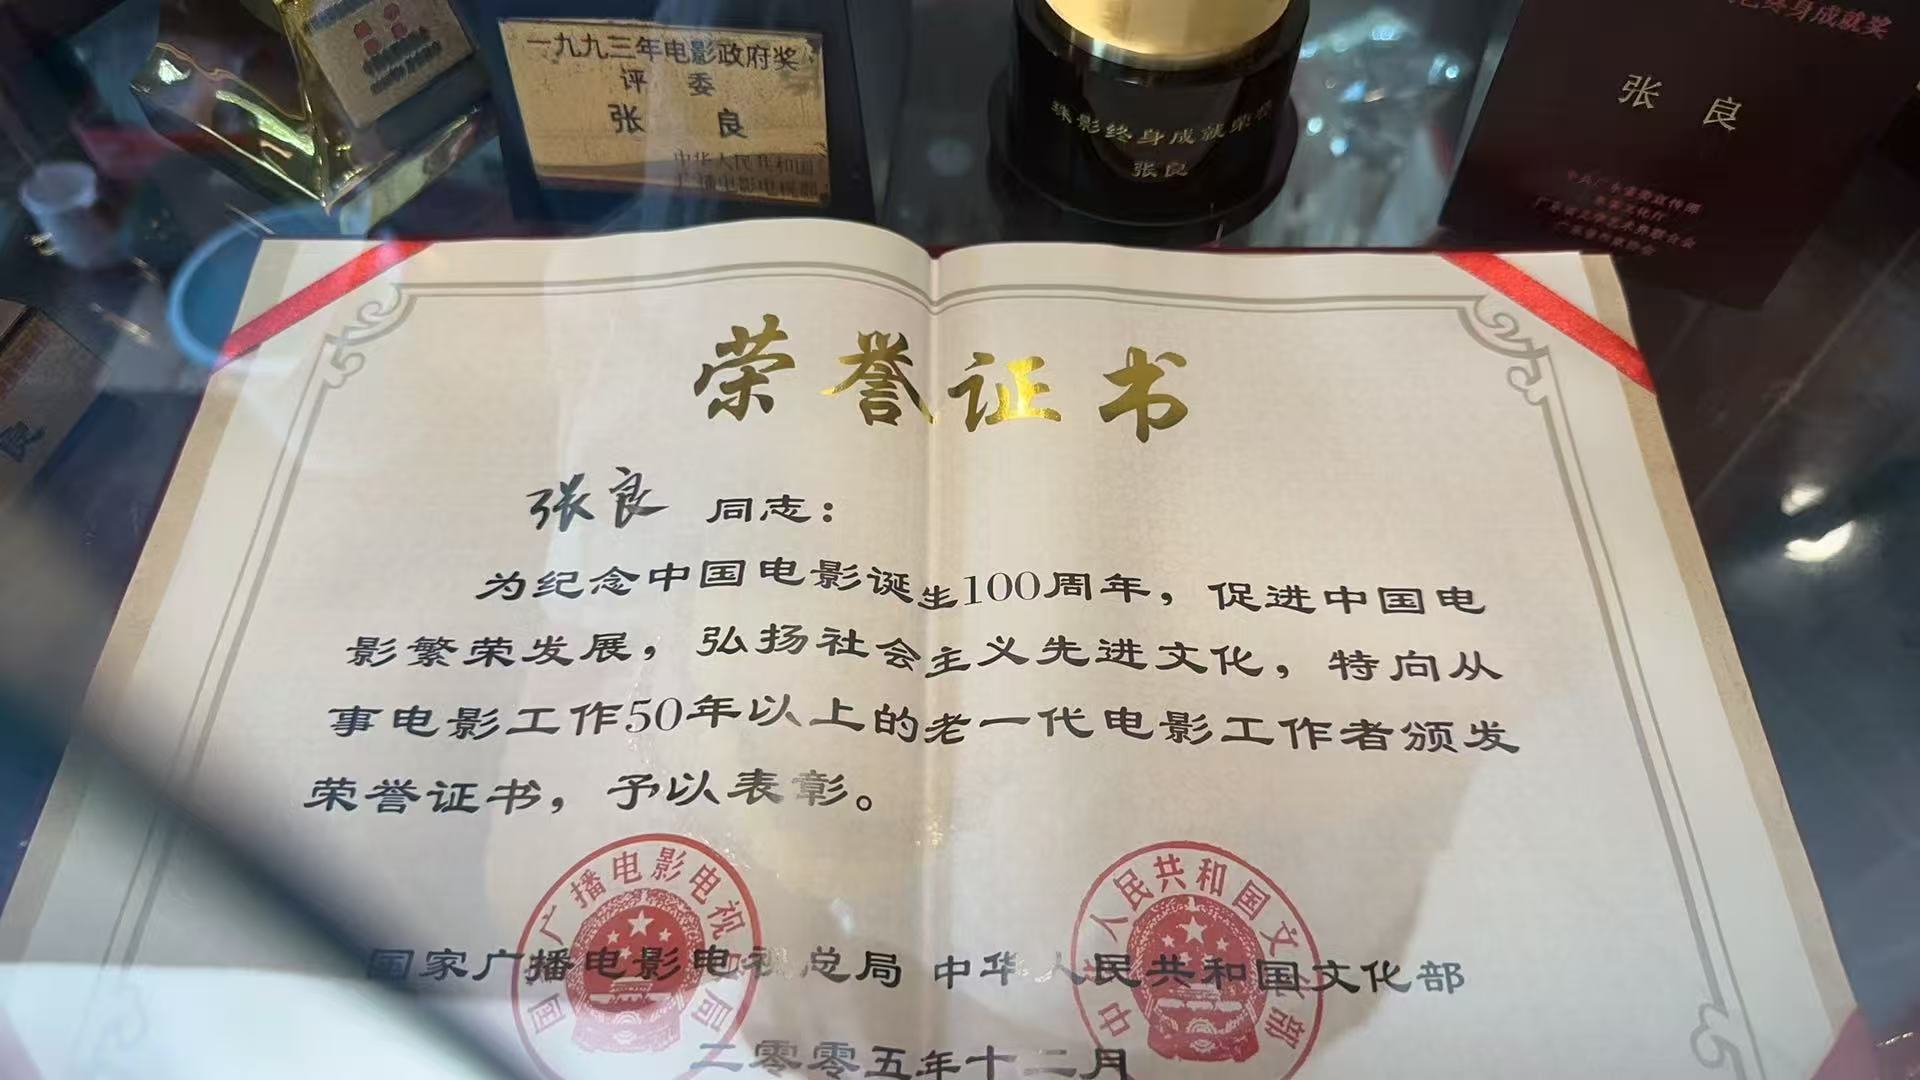 一九九三年电影政府奖
评委
张良
中华人民共和国
广播电影电视部
珠影终身成就荣誉
张良
终身成就奖
张良
中共广东省委宣传部
广东省文学艺术界联合会
荣誉证书
张良 同志：
为纪念中国电影诞生100周年，促进中国电
影繁荣发展，弘扬社会主义先进文化，特向从
事电影工作50年以上的老一代电影工作者颁发
荣誉证书，予以表彰。
国家广播电影电视总局 中华人民共和国文化部
二零零五年十二月
国家广播电影电视总局
中华人民共和国文化部
良